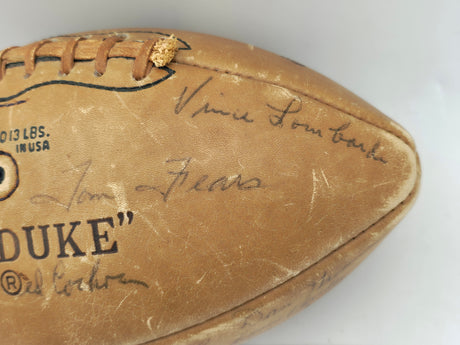 Vince Lombardi
0 13 LBS.
IN USA
Tom Fears
DUKE"
® Cochran